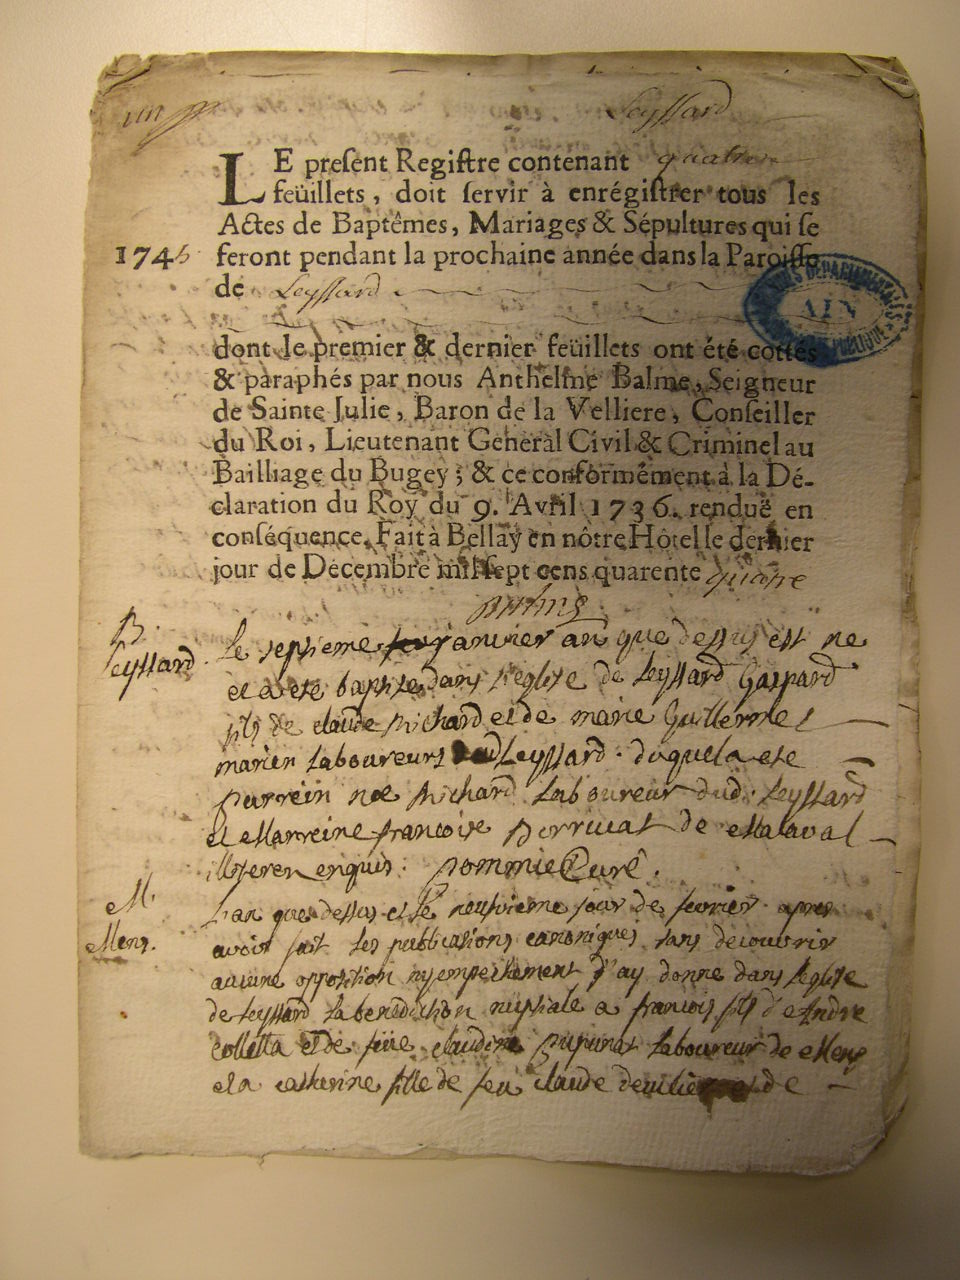 un
Leyssard
LE preſent Regiſtre contenant quatre
feüillets, doit ſervir à enrégiſtrer tous les
Actes de Baptêmes, Mariages & Sépultures qui ſe
1745 feront pendant la prochaine année dans la Paroiſſe
de Leyssard
ARCHIVES DEPARTEMENTALES
AIN
dont le premier & dernier feüillets ont été cottés
& paraphés par nous Anthelme Balme, Seigneur
de Sainte Julie, Baron de la Velliere, Conſeiller
du Roi, Lieutenant General Civil & Criminel au
Bailliage du Bugey; & ce conformément à la Dé-
claration du Roy du 9. Avril 1736. renduë en
conſéquence. Fait à Bellay en nôtre Hôtel le dernier
jour de Décembre mil ſept cens quarente quatre
B.
Leyssard. Le septieme janvier an que dessus est ne
et a ete baptise dans l'eglise de Leyssard Gaspard
fils de claude Michard et de marie Guillermet
laboureurs Leyssard. duquel a ete
parrein noe Michard laboureur dud. Leyssard
et Marreine francoise de Malaval
enquis. Curé.
M.
L'an que dessus et le neufvieme jour de fevrier apres
Mens. avoir fait les publications canoniques sans decouvrir
aucune opposition ny empechement J'ay donne dans l'eglise
de Leyssard la benediction nuptiale a francois fils d'Andre
colletta et de laboureur de Mens
et a catherine fille de feu claude et de